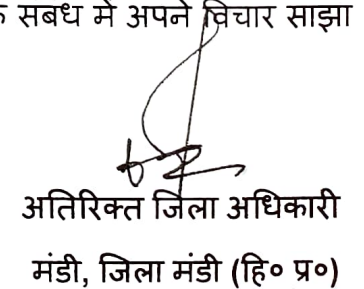 सबध मे अपने विचार साझा
अतिरिक्त जिला अधिकारी
मंडी, जिला मंडी (हि० प्र०)